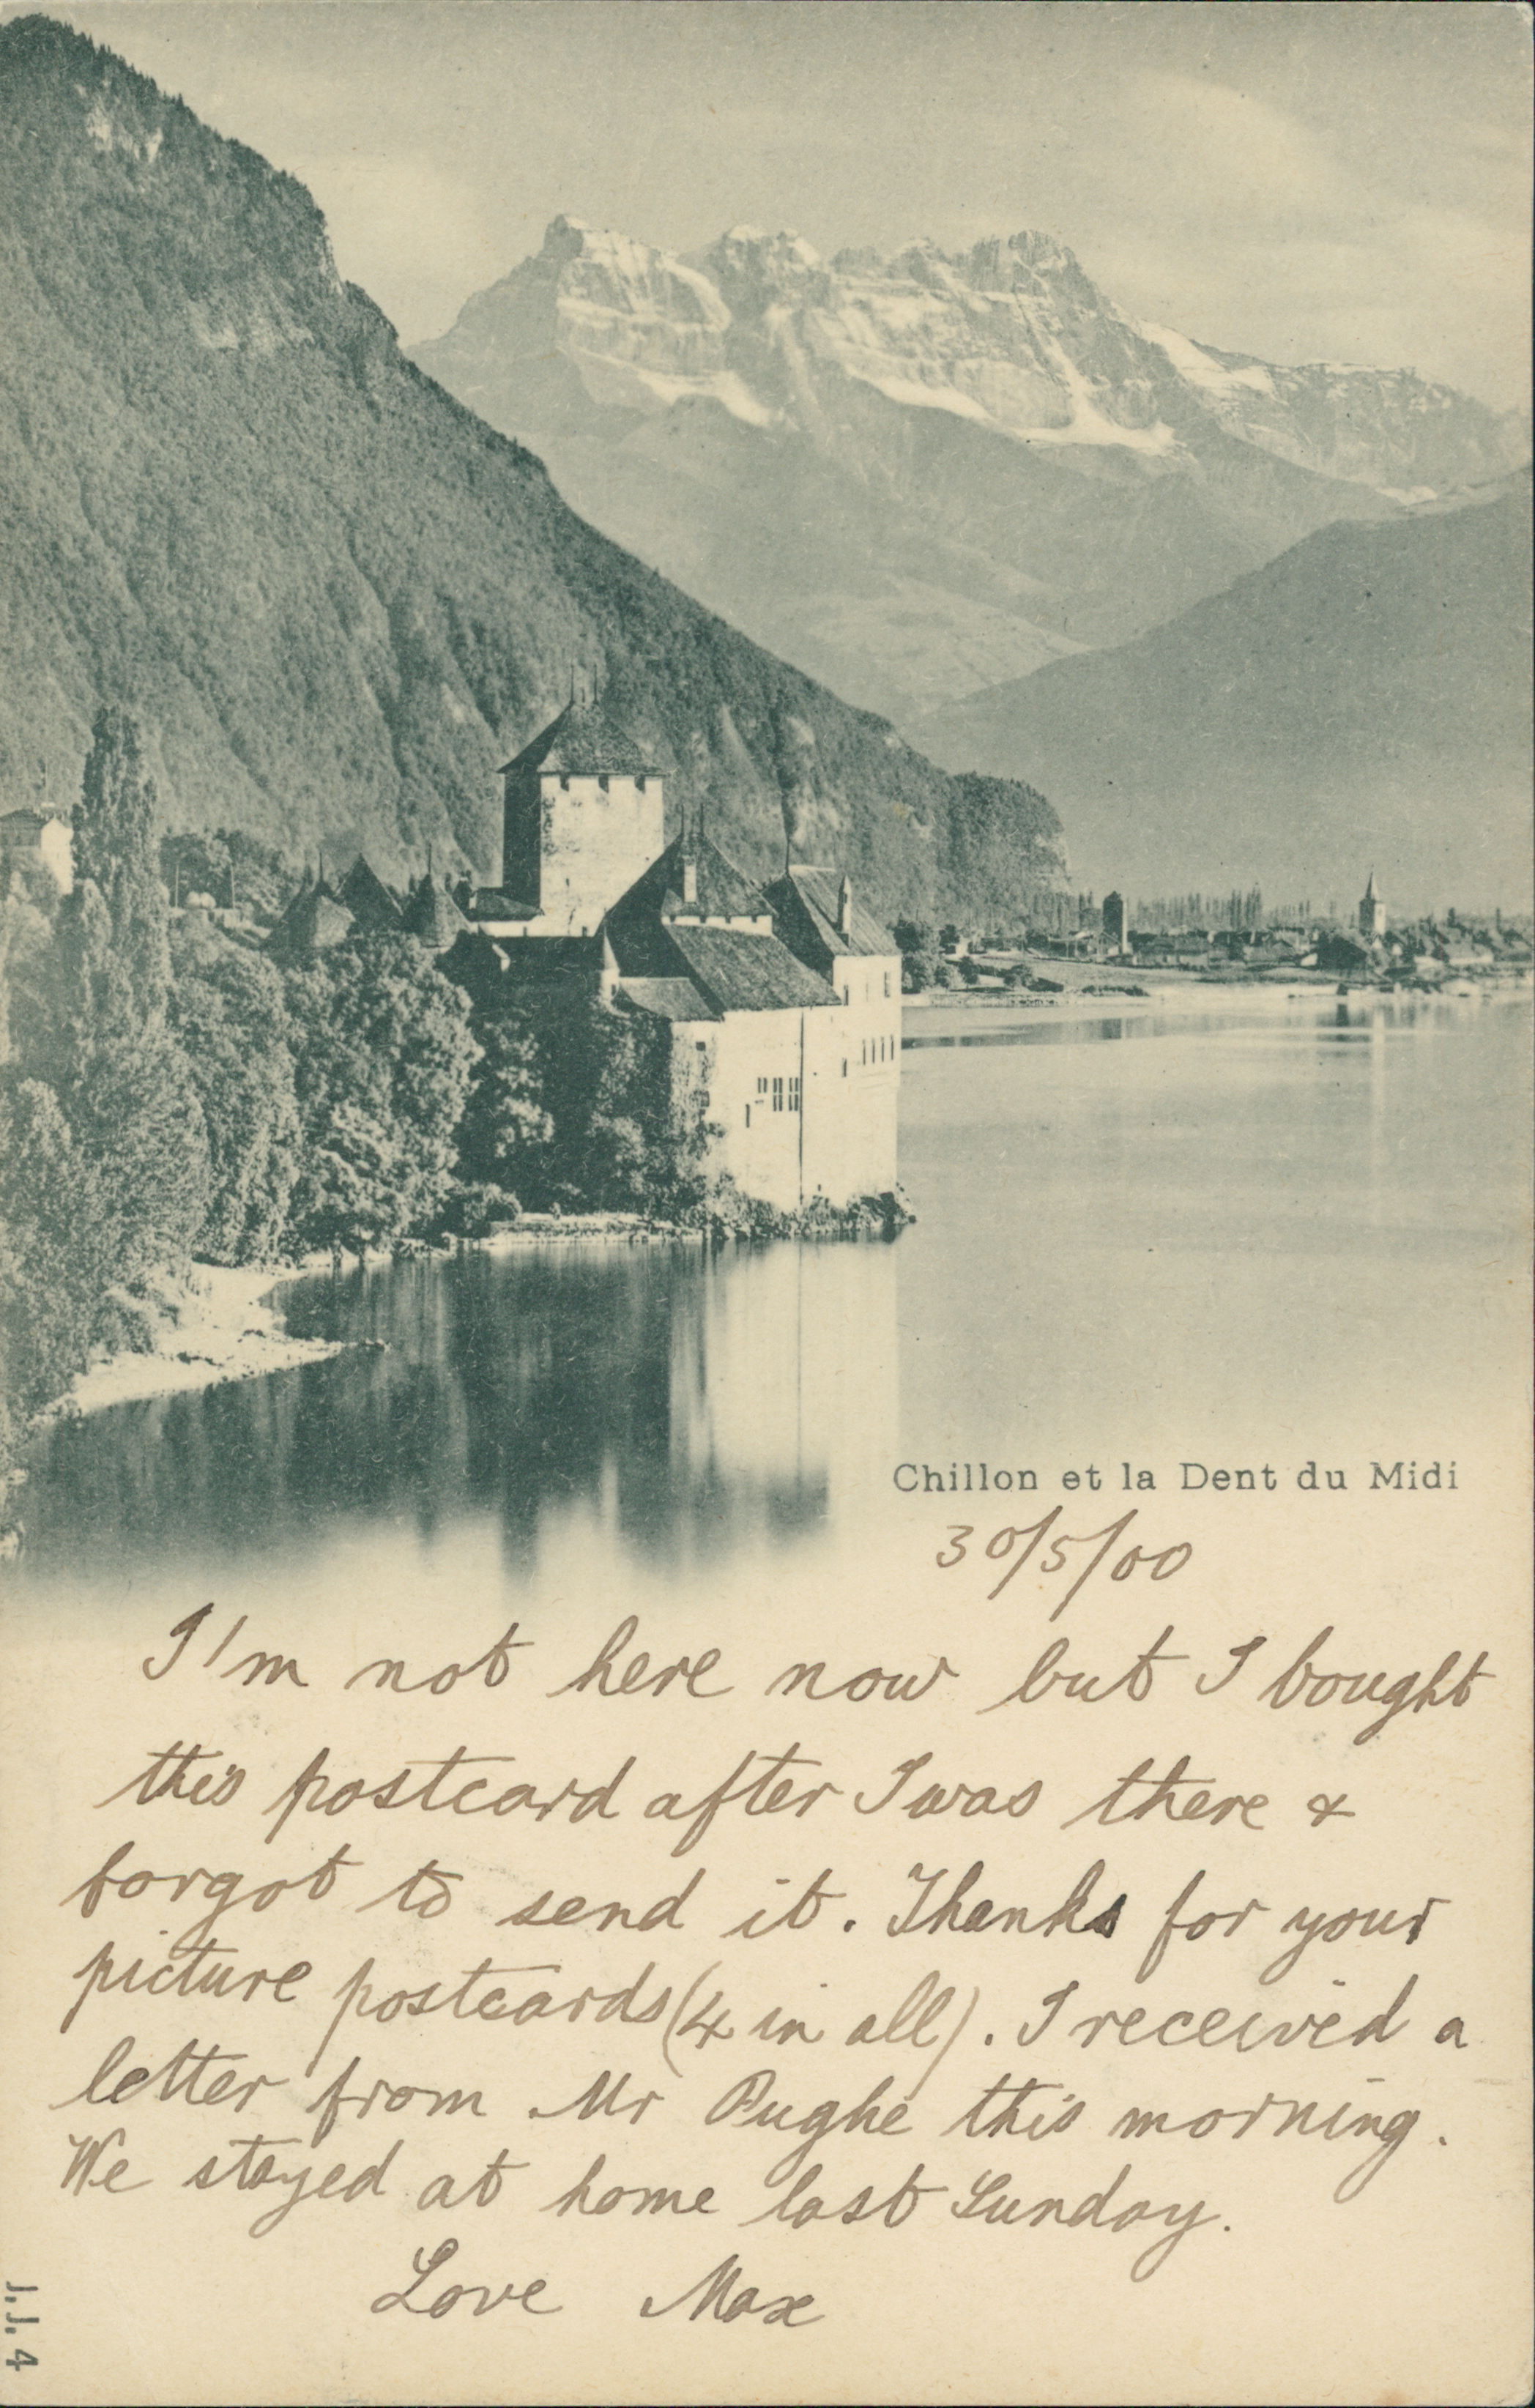 Chillon et la Dent du Midi
30/5/00
I'm not here now but I bought
this postcard after I was there &
forgot to send it. Thanks for your
picture postcards (4 in all). I received a
letter from Mr Pughe this morning.
We stayed at home last Sunday.
Love Max
J.J. 4